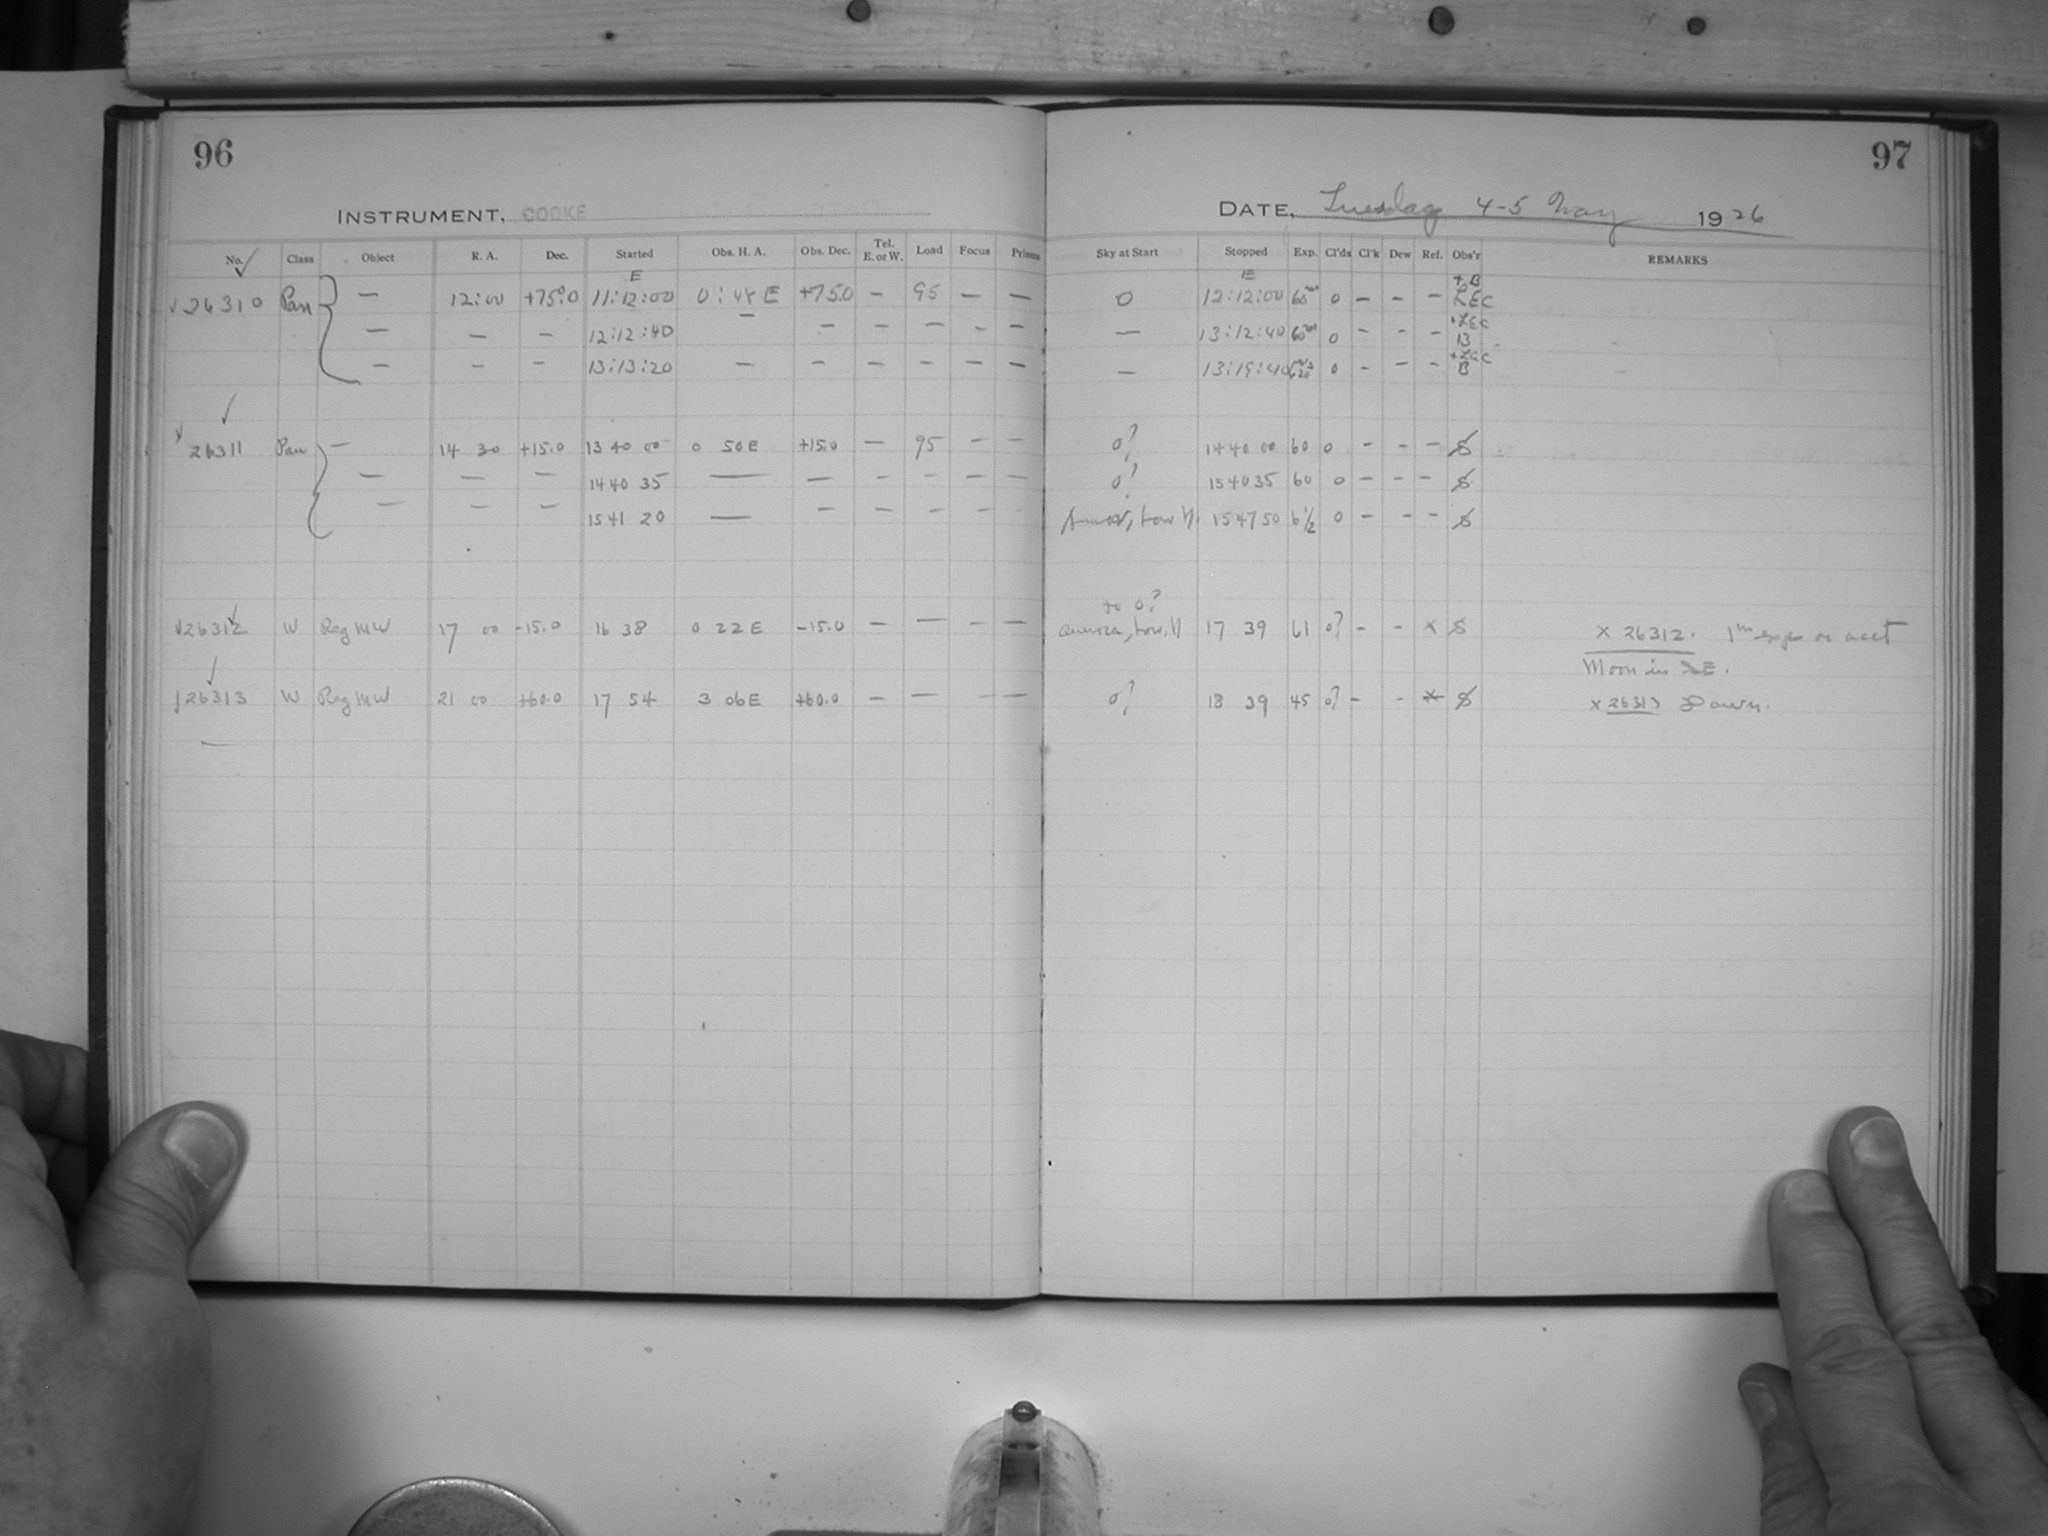 96
97
INSTRUMENT, COOKE
DATE, Tuesday 4-5 May 1926
No. Class Object R. A. Dec. Started Obs. H. A. Obs. Dec. Tel. E. or W. Load Focus Prisms Sky at Start Stopped Exp. Cl'ds Cl'k Dew Ref. Obs'r REMARKS
E E
26310 Pan — 12:00 +75.0 11:12:00 0:48 E +75.0 — 95 — — 0 12:12:00 60m 0 — — — + B LEC
— — — 12:12:40 — — — — — — — 13:12:40 60m 0 — — — + LEC B
— — — 13:13:20 — — — — — — — 13:19:40 0 — — — + LEC B
26311 Pan — 14 30 +15.0 13 40 00 0 50 E +15.0 — 95 — — 0? 14 40 00 60 0 — — — S
— — — 14 40 35 — — — — — — 0? 15 40 35 60 0 — — — S
— — — 15 41 20 — — — — — low N. 15 47 50 6 1/2 0 — — — S
to 0?
26312 W Reg MW 17 00 -15.0 16 38 0 22 E -15.0 — — — — aurora, low, N 17 39 61 0? — — x S x 26312. 1m exp on acct
Moon in SE.
26313 W Reg MW 21 00 +60.0 17 54 3 06 E +60.0 — — — — 0? 18 39 45 0? — — x S x 26313 Dawn.